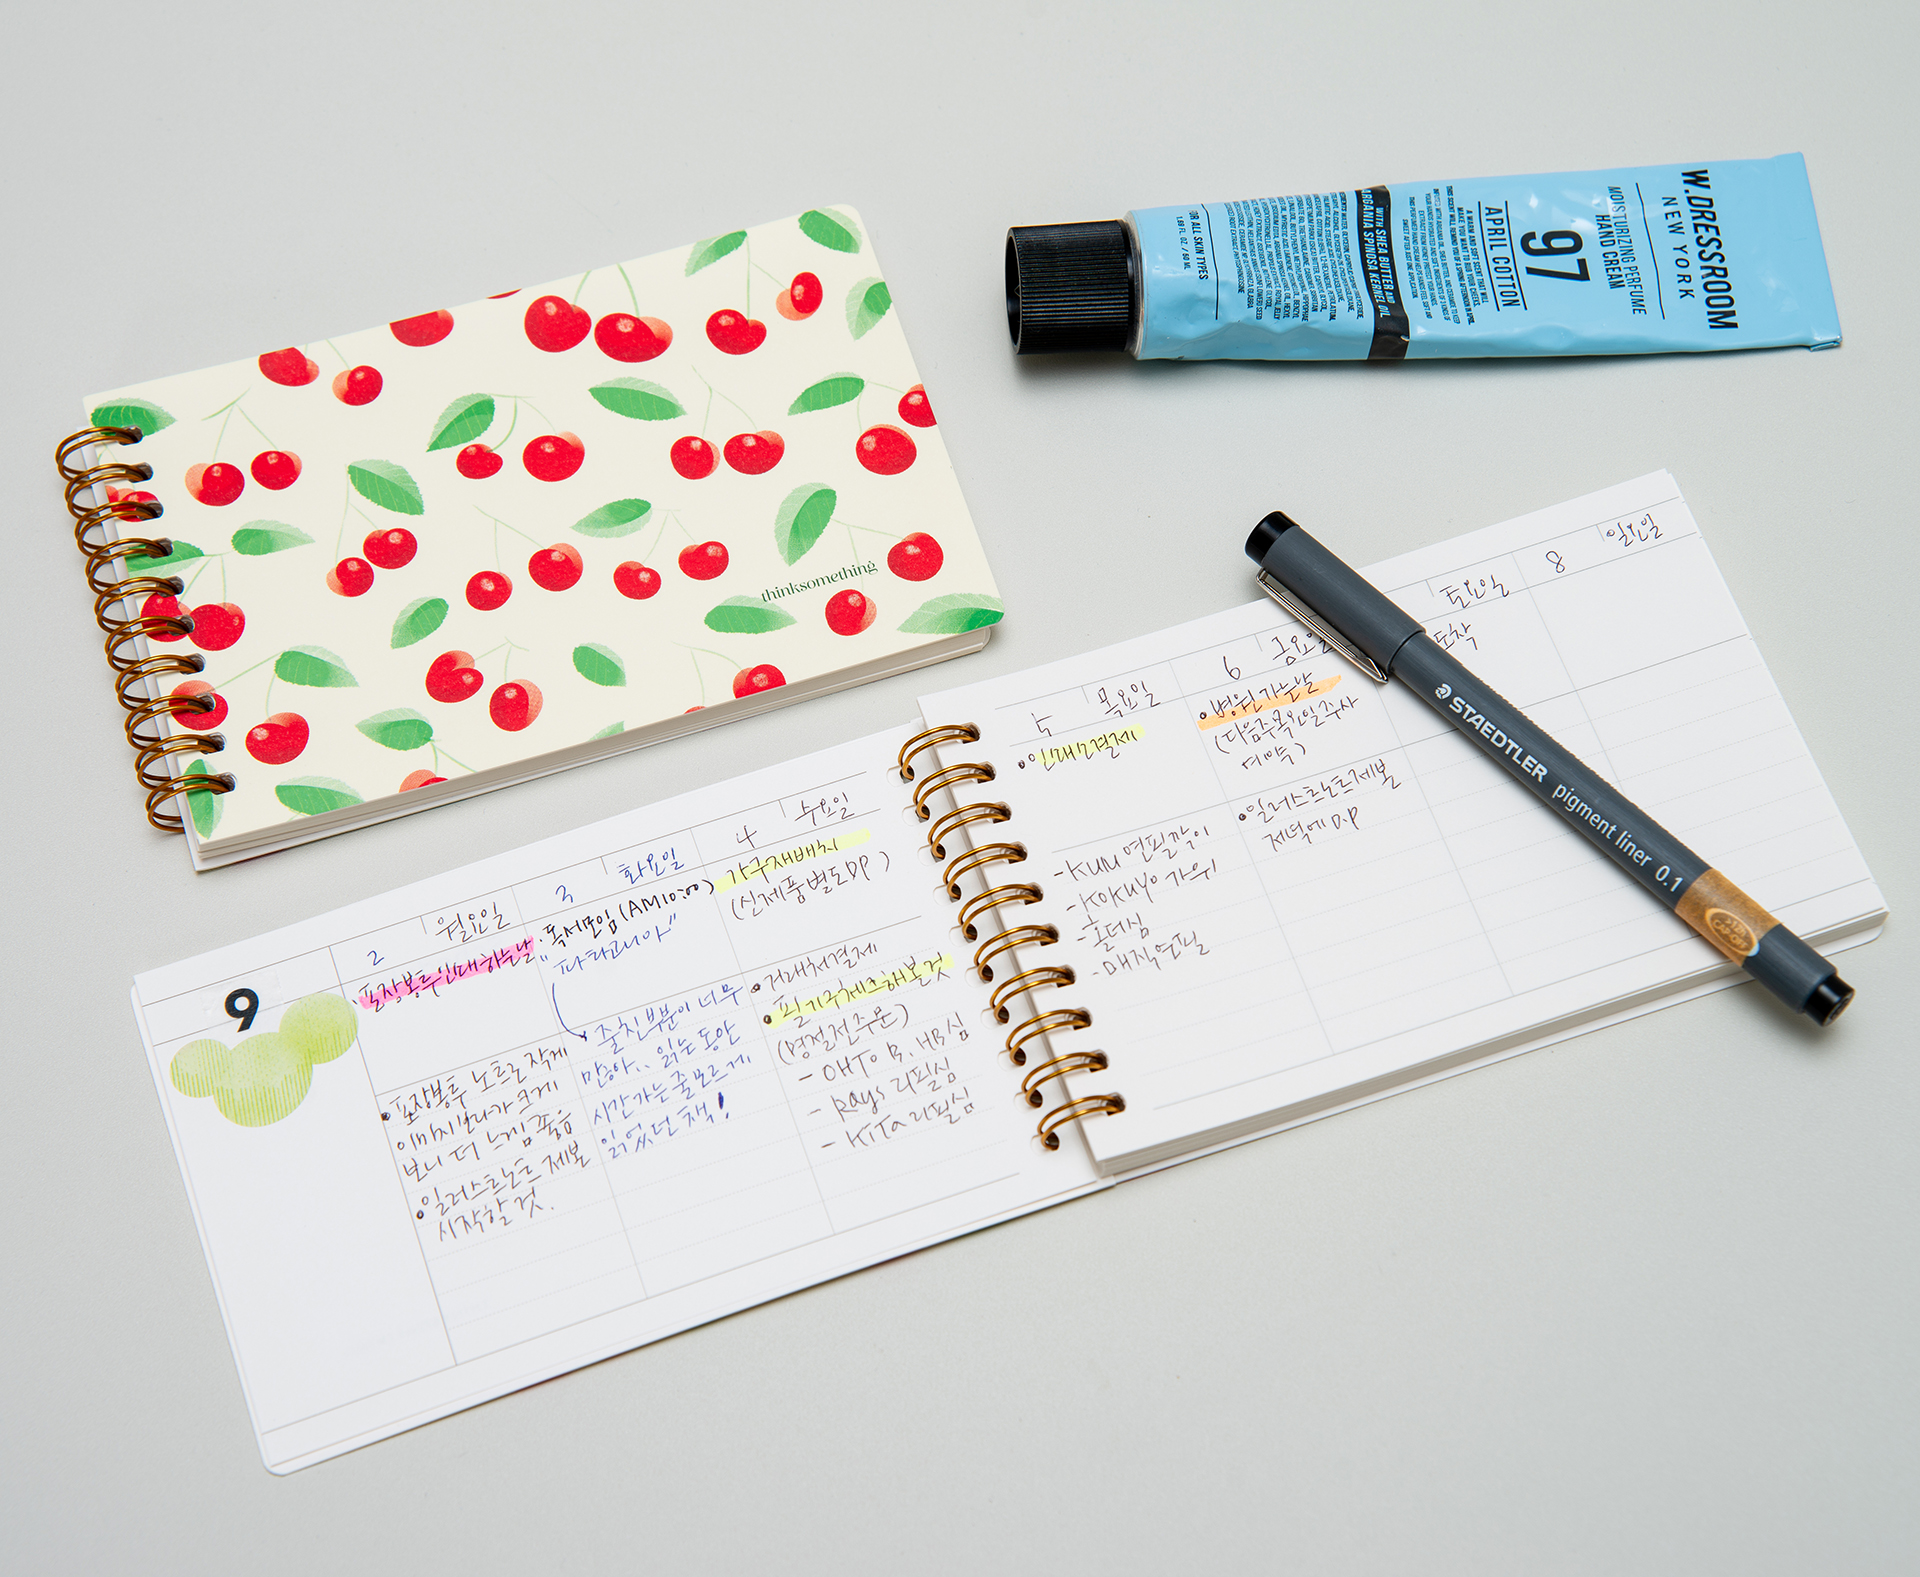 thinksomething
W.DRESSROOM
NEW YORK
MOISTURIZING PERFUME
HAND CREAM
97
APRIL COTTON
A WARM AND SOFT SCENT THAT WILL
MAKE YOU WANT TO RUB YOUR CHEEKS.
WITH SHEA BUTTER AND
ARGANIA SPINOSA KERNEL OIL
FOR ALL SKIN TYPES
1.69 FL. OZ. / 50 ML
STAEDTLER pigment liner 0.1
9
2 월요일
포장봉투 인쇄하는날
• 포장봉투 노트로 작게
이미지보다가 크게
보니 더 느낌 좋음
• 일러스트노트 제본
시작할 것.
3 화요일
• 독서모임 (AM10:00)
"파타고니아"
줄친부분이 너무
많아.. 읽는 동안
시간가는 줄 모르게
읽었던 책!
4 수요일
가구재배치
(신제품 별도 DP)
• 거래처결제
• 필기구체크해볼것
(명절전주문)
- OHTO B, HB심
- Rays 리필심
- KiTa 리필심
5 목요일
• 인쇄소결제
- KUM 연필깎이
- KOKUYO 가위
- 홀더심
- 매직연필
6 금요일
• 병원가는날
(다음주목요일주사
예약)
• 일러스트노트제본
저녁에 D.P
토요일
도착
8 일요일